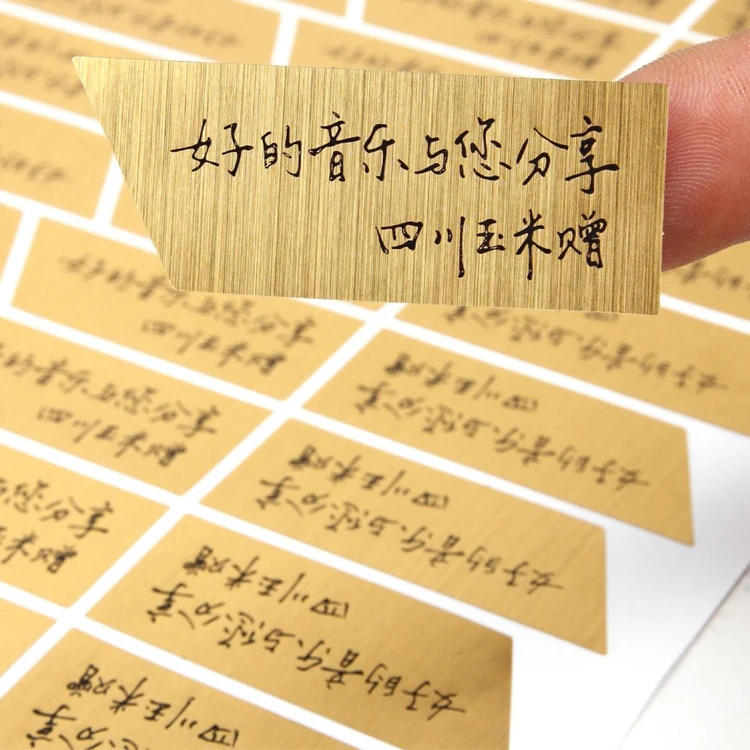 好的音乐与您分享
四川玉米赠